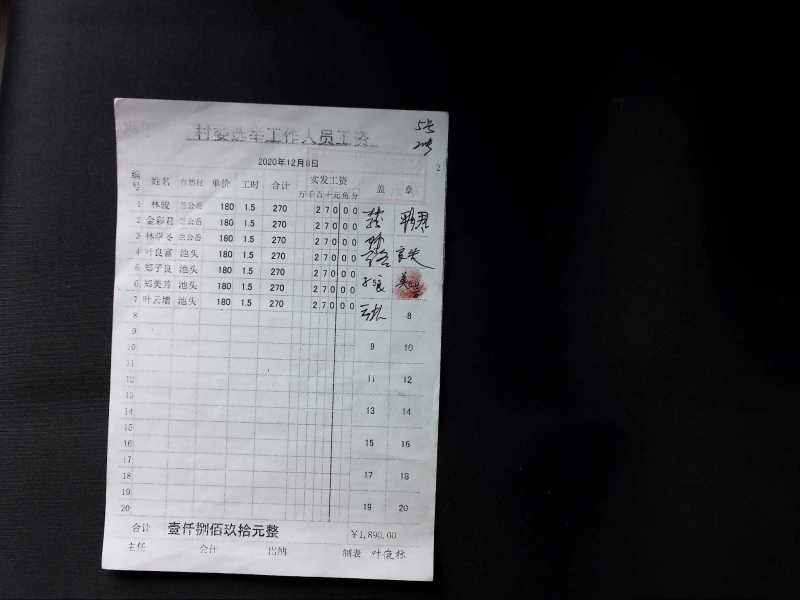 5号
村委选举工作人员工资
2020年12月8日
2
编号 姓名 自然村 单价 工时 合计 实发工资 盖 章
万千百十元角分
1 林毅 兰公岙 180 1.5 270 27000
2 金彩君 兰公岙 180 1.5 270 27000 彩君
3 兰公岙 180 1.5 270 27000
4 叶良富 池头 180 1.5 270 27000
5 郑子良 池头 180 1.5 270 27000 子良
6 郑美芳 池头 180 1.5 270 27000
7 叶云增 池头 180 1.5 270 27000 8
8
9 9 10
10
11 11 12
12
13 13 14
14
15 15 16
16
17 17 18
18
19 19 20
20
合计 壹仟捌佰玖拾元整 ¥1,890.00
主任 会计 出纳 制表 叶俊标